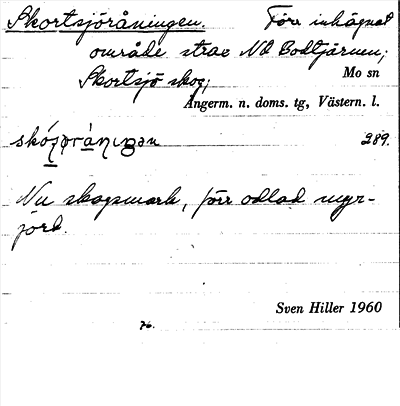 Skortsjöråningen. Förr inhägnat
område strax NV Bodtjärnen;
Skortsjö skog; Mo sn
Ångerm. n. doms. tg, Västern. l.
289.
Nu skogsmark, förr odlad myr-
jord.
Sven Hiller 1960